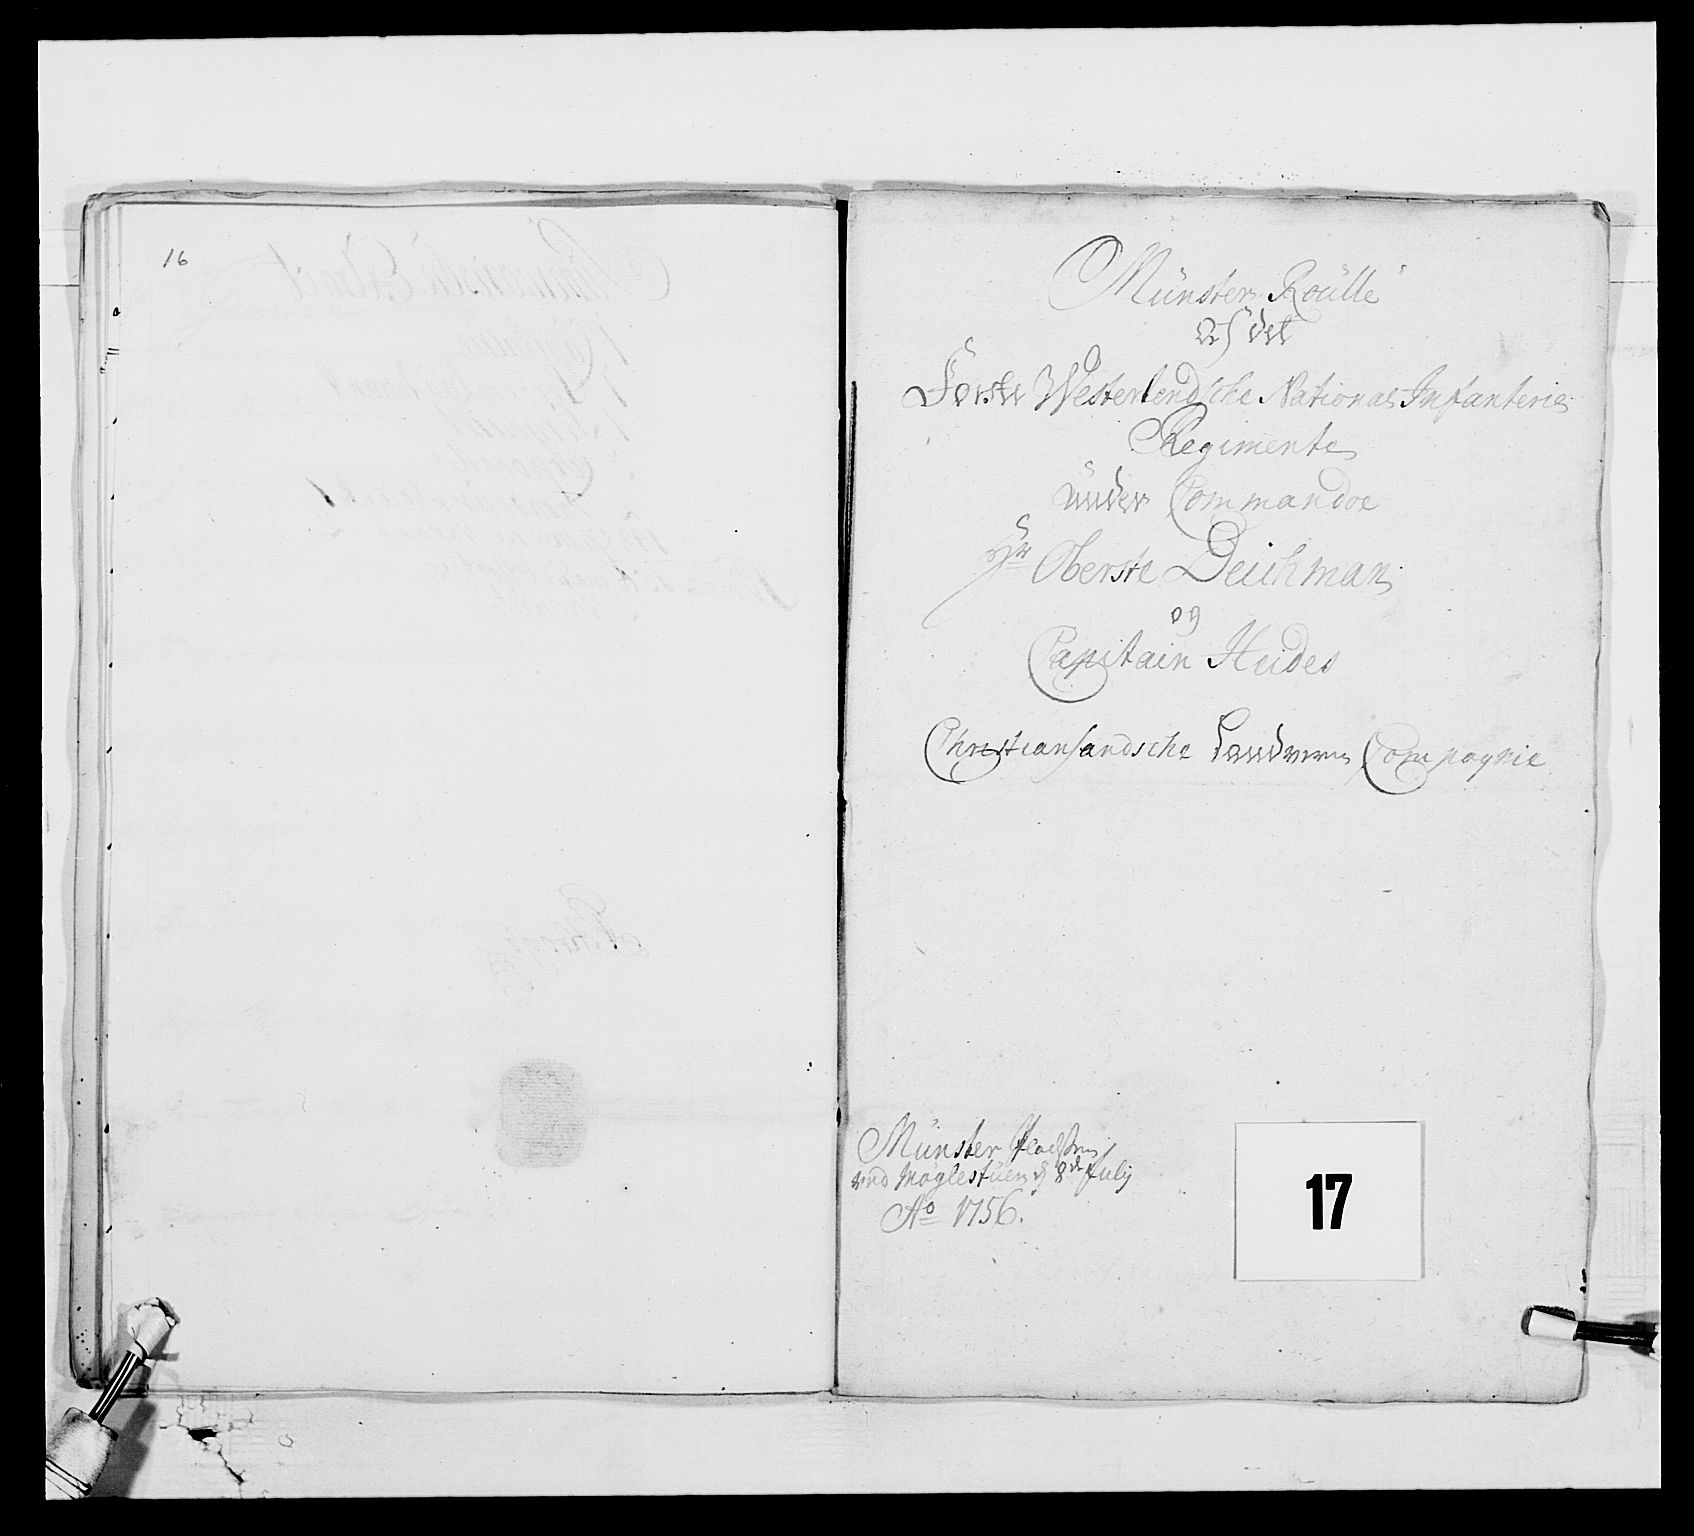 16
Münster Roülle
af det
Første Westerlendsche National Infanterie
Regimente
ünder Commandoe
Hr Oberste Deichman
og
Capitain Heides
Christiansandsche Landværn Compagnie
Münster Pladsen
ved Møglestüen d 8de July
Ao 1756.
17